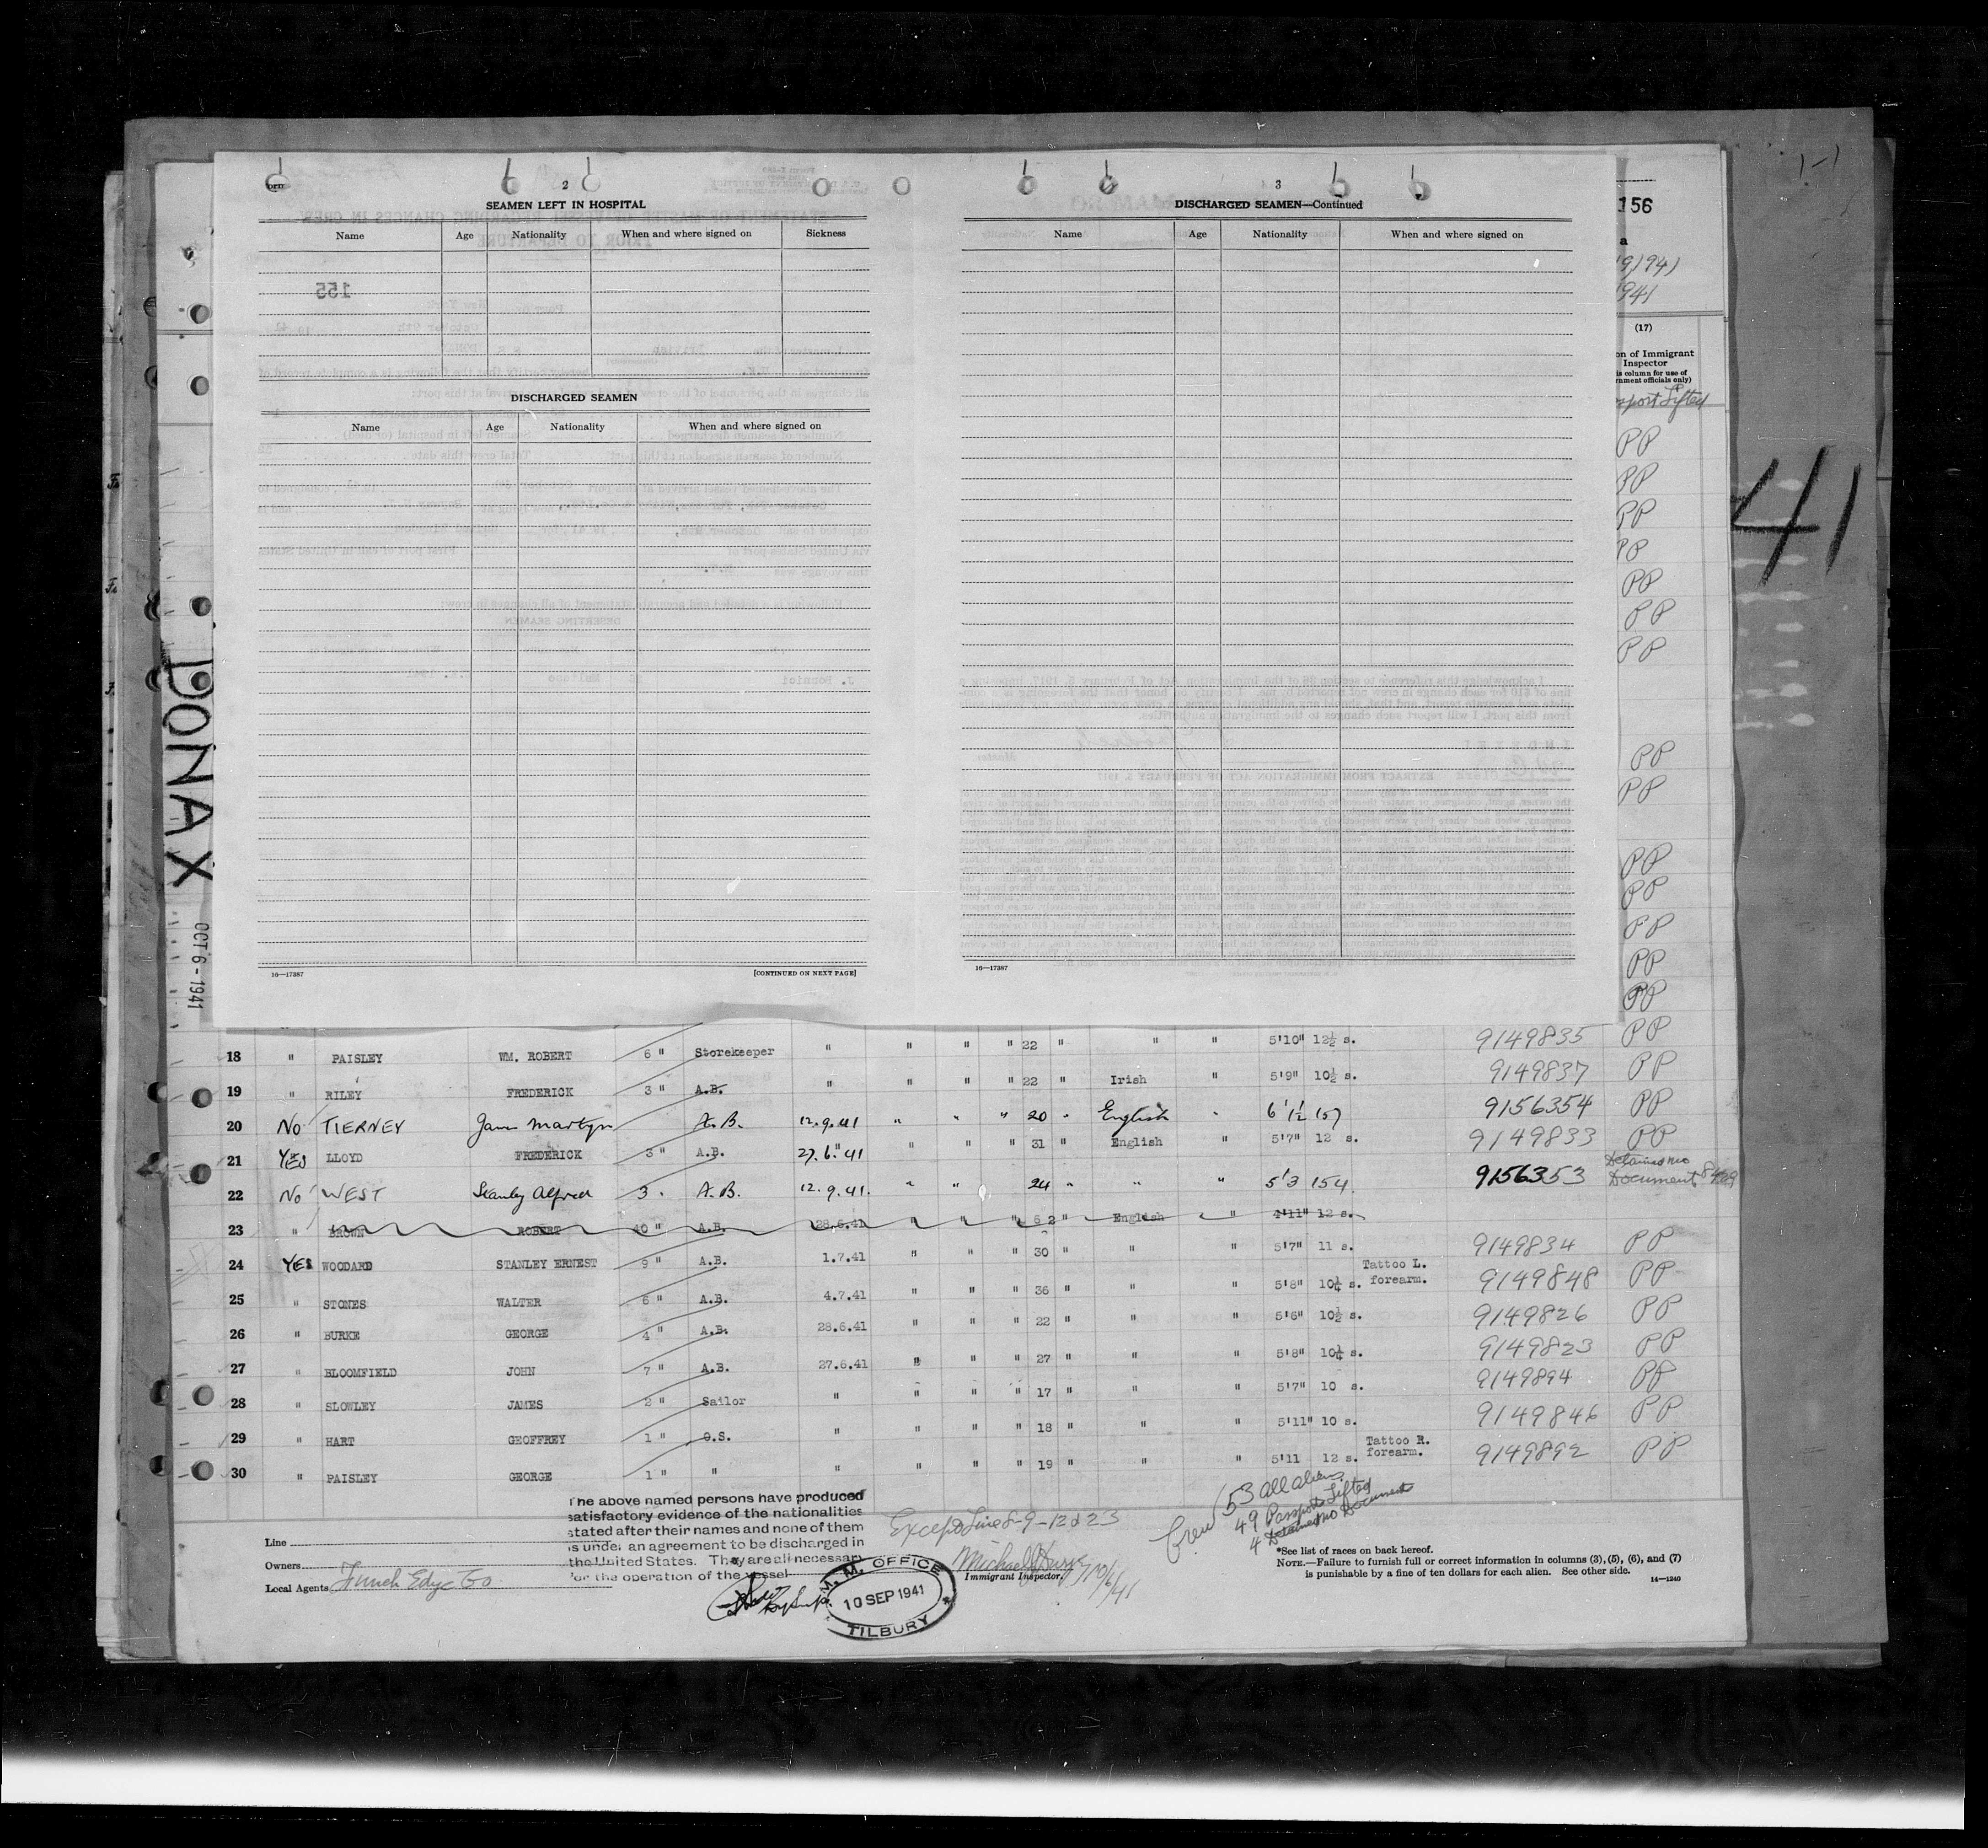 2
SEAMEN LEFT IN HOSPITAL
Name Age Nationality When and where signed on Sickness
155
DISCHARGED SEAMEN
Name Age Nationality When and where signed on
16—17387 [CONTINUED ON NEXT PAGE]
3
DISCHARGED SEAMEN—Continued
Name Age Nationality When and where signed on
16—17387
156
(17)
on of Immigrant
Inspector
is column for use of
rnment officials only)
PP
PP
PP
PP
PP
PP
PP
PP
PP
PP
PP
PP
PP
PP
41
DONAX
OCT 6 - 1941
18 " PAISLEY WM. ROBERT 6 " Storekeeper " " " " 22 " " " 5'10" 12½ s. 9149835 PP
19 " RILEY FREDERICK 3 " A.B. " " " " 22 " Irish " 5'9" 10½ s. 9149837 PP
20 No TIERNEY James Martyn A.B. 12.9.41 " " " 20 " English " 6'1½ 157 9156354 PP
21 YES LLOYD FREDERICK 3 " A.B. 27.6.41 " " " 31 " English " 5'7" 12 s. 9149833 PP
22 No WEST Stanley Alfred 3 " A.B. 12.9.41. " " 24 " " " 5'3 154 9156353 Detained no Document
23 " BROWN ROBERT 40 " A.B. 28.6.41 " " " 62 " English " 4'11" 12 s.
24 YES WOODARD STANLEY ERNEST 9 " A.B. 1.7.41 " " " 30 " " " 5'7" 11 s. 9149834 PP
25 " STONES WALTER 6 " A.B. 4.7.41 " " " 36 " " " 5'8" 10¼ s. Tattoo L. forearm. 9149848 PP
26 " BURKE GEORGE 4 " A.B. 28.6.41 " " " 22 " " " 5'6" 10½ s. 9149826 PP
27 " BLOOMFIELD JOHN 7 " A.B. 27.6.41 " " " 27 " " " 5'8" 10¼ s. 9149823 PP
28 " SLOWLEY JAMES 2 " Sailor " " " " 17 " " " 5'7" 10 s. 9149894 PP
29 " HART GEOFFREY 1 " O.S. " " " " 18 " " " 5'11" 10 s. 9149846 PP
30 " PAISLEY GEORGE 1 " " " " " " 19 " " " 5'11 12 s. Tattoo R. forearm. 9149892 PP
The above named persons have produced
satisfactory evidence of the nationalities
stated after their names and none of them
is under an agreement to be discharged in
the United States. They are all necessary
for the operation of the vessel
Except Line 8-9-12 & 23
Crew 53 all aliens
49 Passports Lifted
4 Detained no Document
Line
Owners
Local Agents Funch Edye Co
Immigrant Inspector. 10/6/41
M. M. OFFICE
10 SEP 1941
TILBURY
*See list of races on back hereof.
NOTE.—Failure to furnish full or correct information in columns (3), (5), (6), and (7)
is punishable by a fine of ten dollars for each alien. See other side.
14—1240